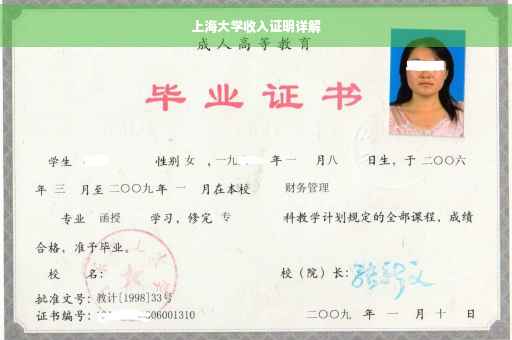 上海大学收入证明详解
成人高等教育
毕业证书
学生 性别 女 ，一九 年 一 月八 日生，于 二〇〇六
年 三 月至二〇〇九年 一 月在本校 财务管理
专业 函授 学习，修完 专 科教学计划规定的全部课程，成绩
合格，准予毕业。
校 名： 校（院）长：
批准文号：教计[1998]33号
证书编号： 06001310 二〇〇九 年 一 月 十 日